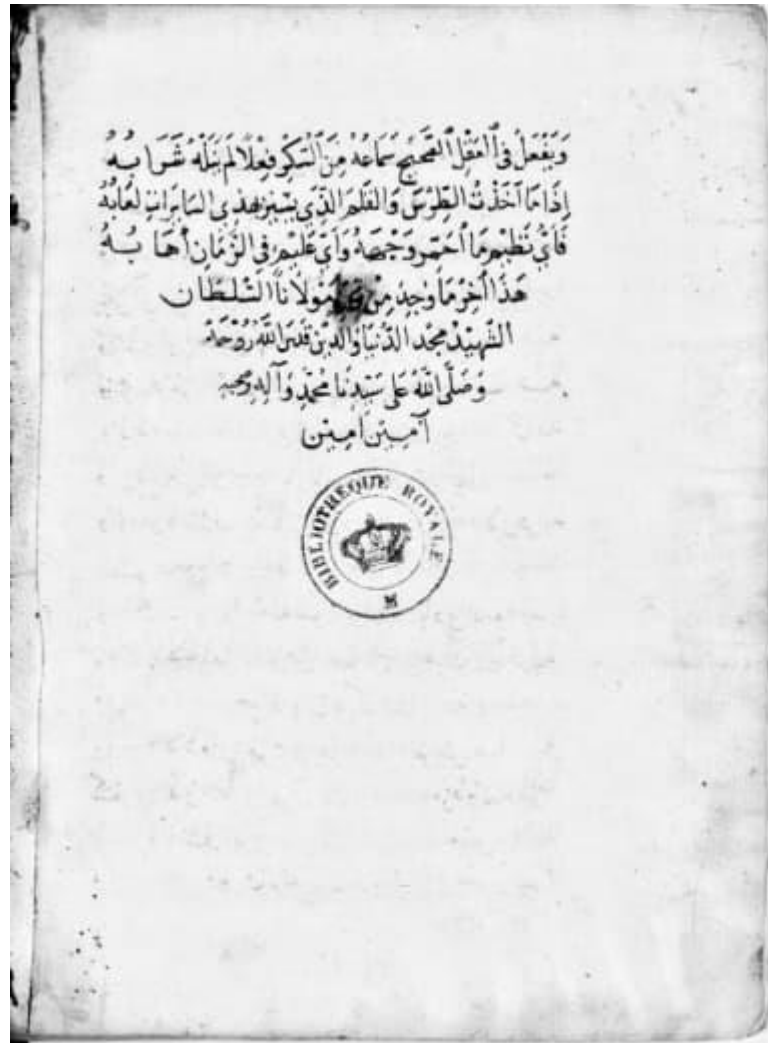 وَيَفْعَلُ فِي ٱلْعَقْلِ ٱلصَّحِيْحِ سَمَاعُهُ مِنَ ٱلسُّكْرِ فِعْلًا لَمْ يَنَلْهُ شَرَابُهُ
إِذَا مَا أَخَذْتُ الطِّرْسَ وَالقَلَمَ الَّذِي يَسِيْرُ بِهَذِي السَّايِرَاتِ لُعَابُهُ
فَأَيُّ نَظِيْمٍ مَا أَحَمِّرُ وَجْهَهُ وَأَيُّ عَظِيْمٍ فِي الزَّمَانِ أَهَابُهُ
هَذَا آخِرُ مَا وُجِدَ مِنْ مَوْلَانَا السُّلْطَان
الشَّهِيْدْ مَجْد الدُّنْيَا وَالدِّيْن قَدَّسَ اللَّهُ رُوْحَهُ
وَصَلَّى اللَّهُ عَلَى سَيِّدِنَا مُحَمَّدٍ وَآلِهِ وَصَحْبِهِ
آمِيْن آمِيْن
BIBLIOTHEQUE ROYALE